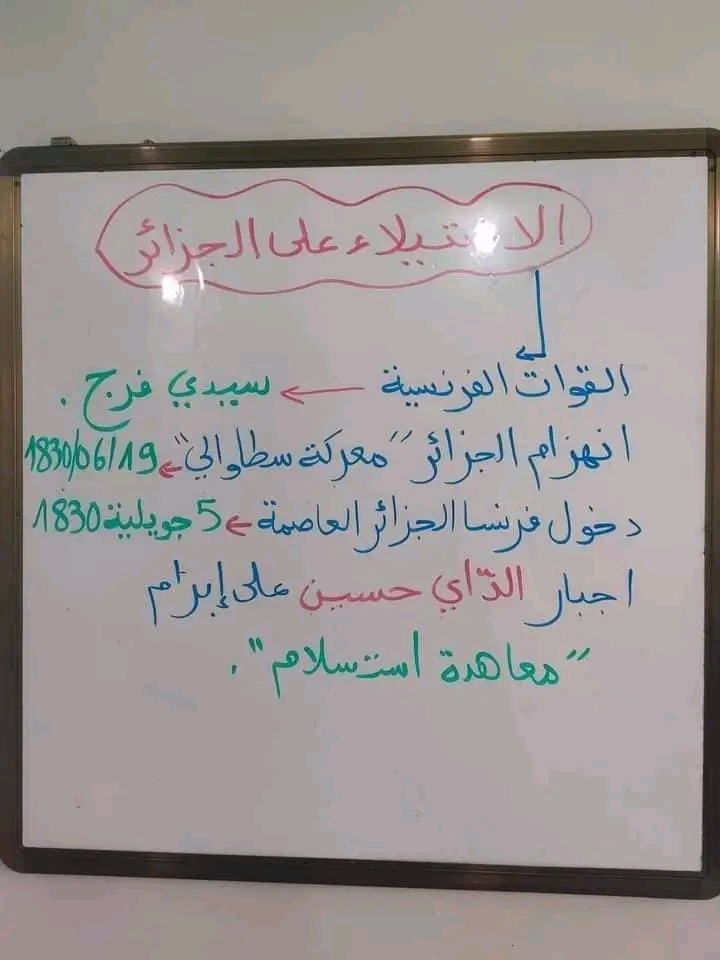 الاستيلاء على الجزائر
القوات الفرنسية ← سيدي فرج .
انهزام الجزائر "معركة سطاوالي" ← 1830/06/19
دخول فرنسا الجزائر العاصمة ← 5 جويلية 1830
اجبار الدّاي حسين على إبرام
"معاهدة استسلام".